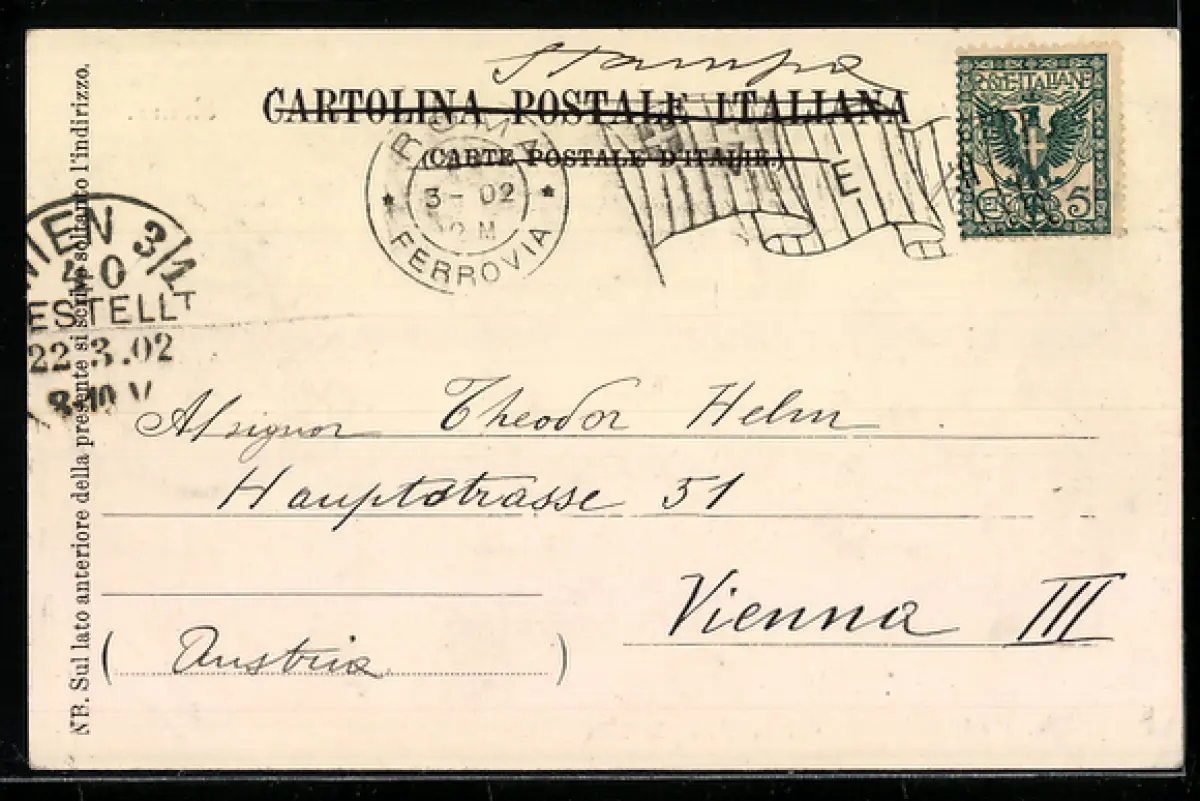 Stampa
CARTOLINA POSTALE ITALIANA
(CARTE POSTALE D'ITALIE.)
POSTE ITALIANE
CEN. 5
ROMA
3 - 02
2 M
* FERROVIA *
E
WIEN 3/1
40
BESTELLT
22.3.02
8-10 V
Al signor Theodor Helm
Hauptstrasse 51
Vienna III
( Austria )
NB. Sul lato anteriore della presente si scrive soltanto l'indirizzo.